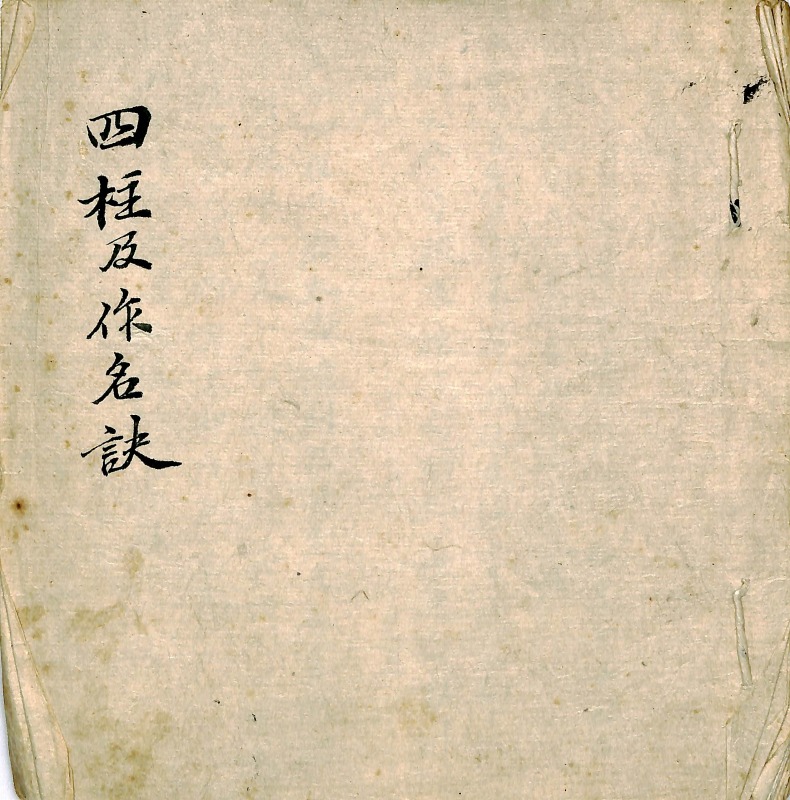 四柱及作名訣